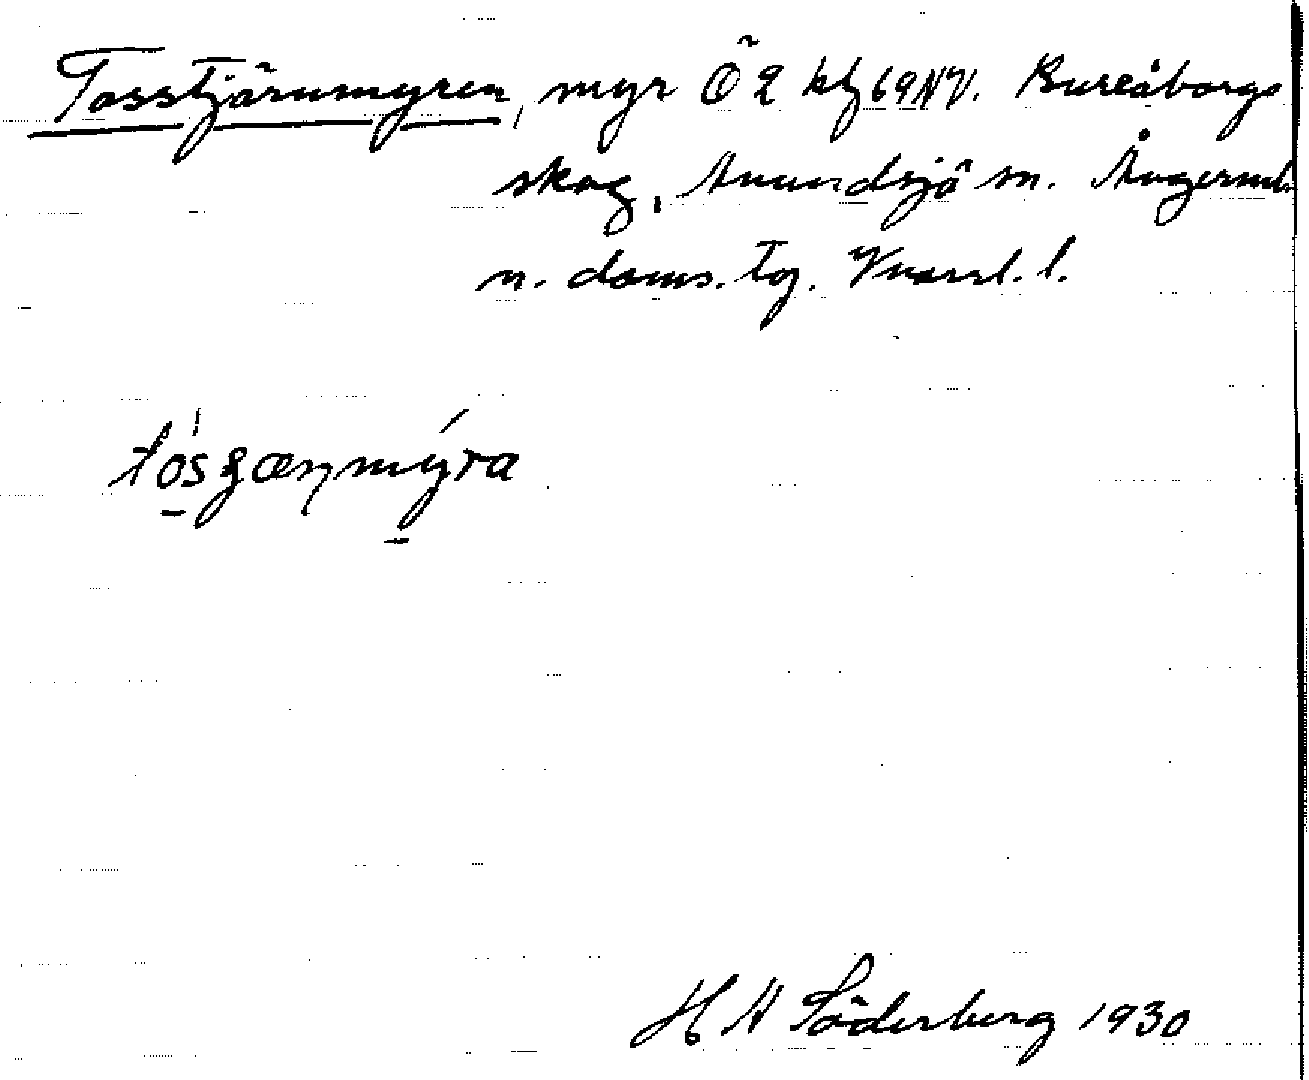 Tosstjärnmyren, myr Ö 2 kbl 69NV. Bureåborgs
skog, Anundsjö sn. ÅngermL
n. doms. Tg. Vnorrl. l.
tósʒænmýra
H A Söderberg 1930